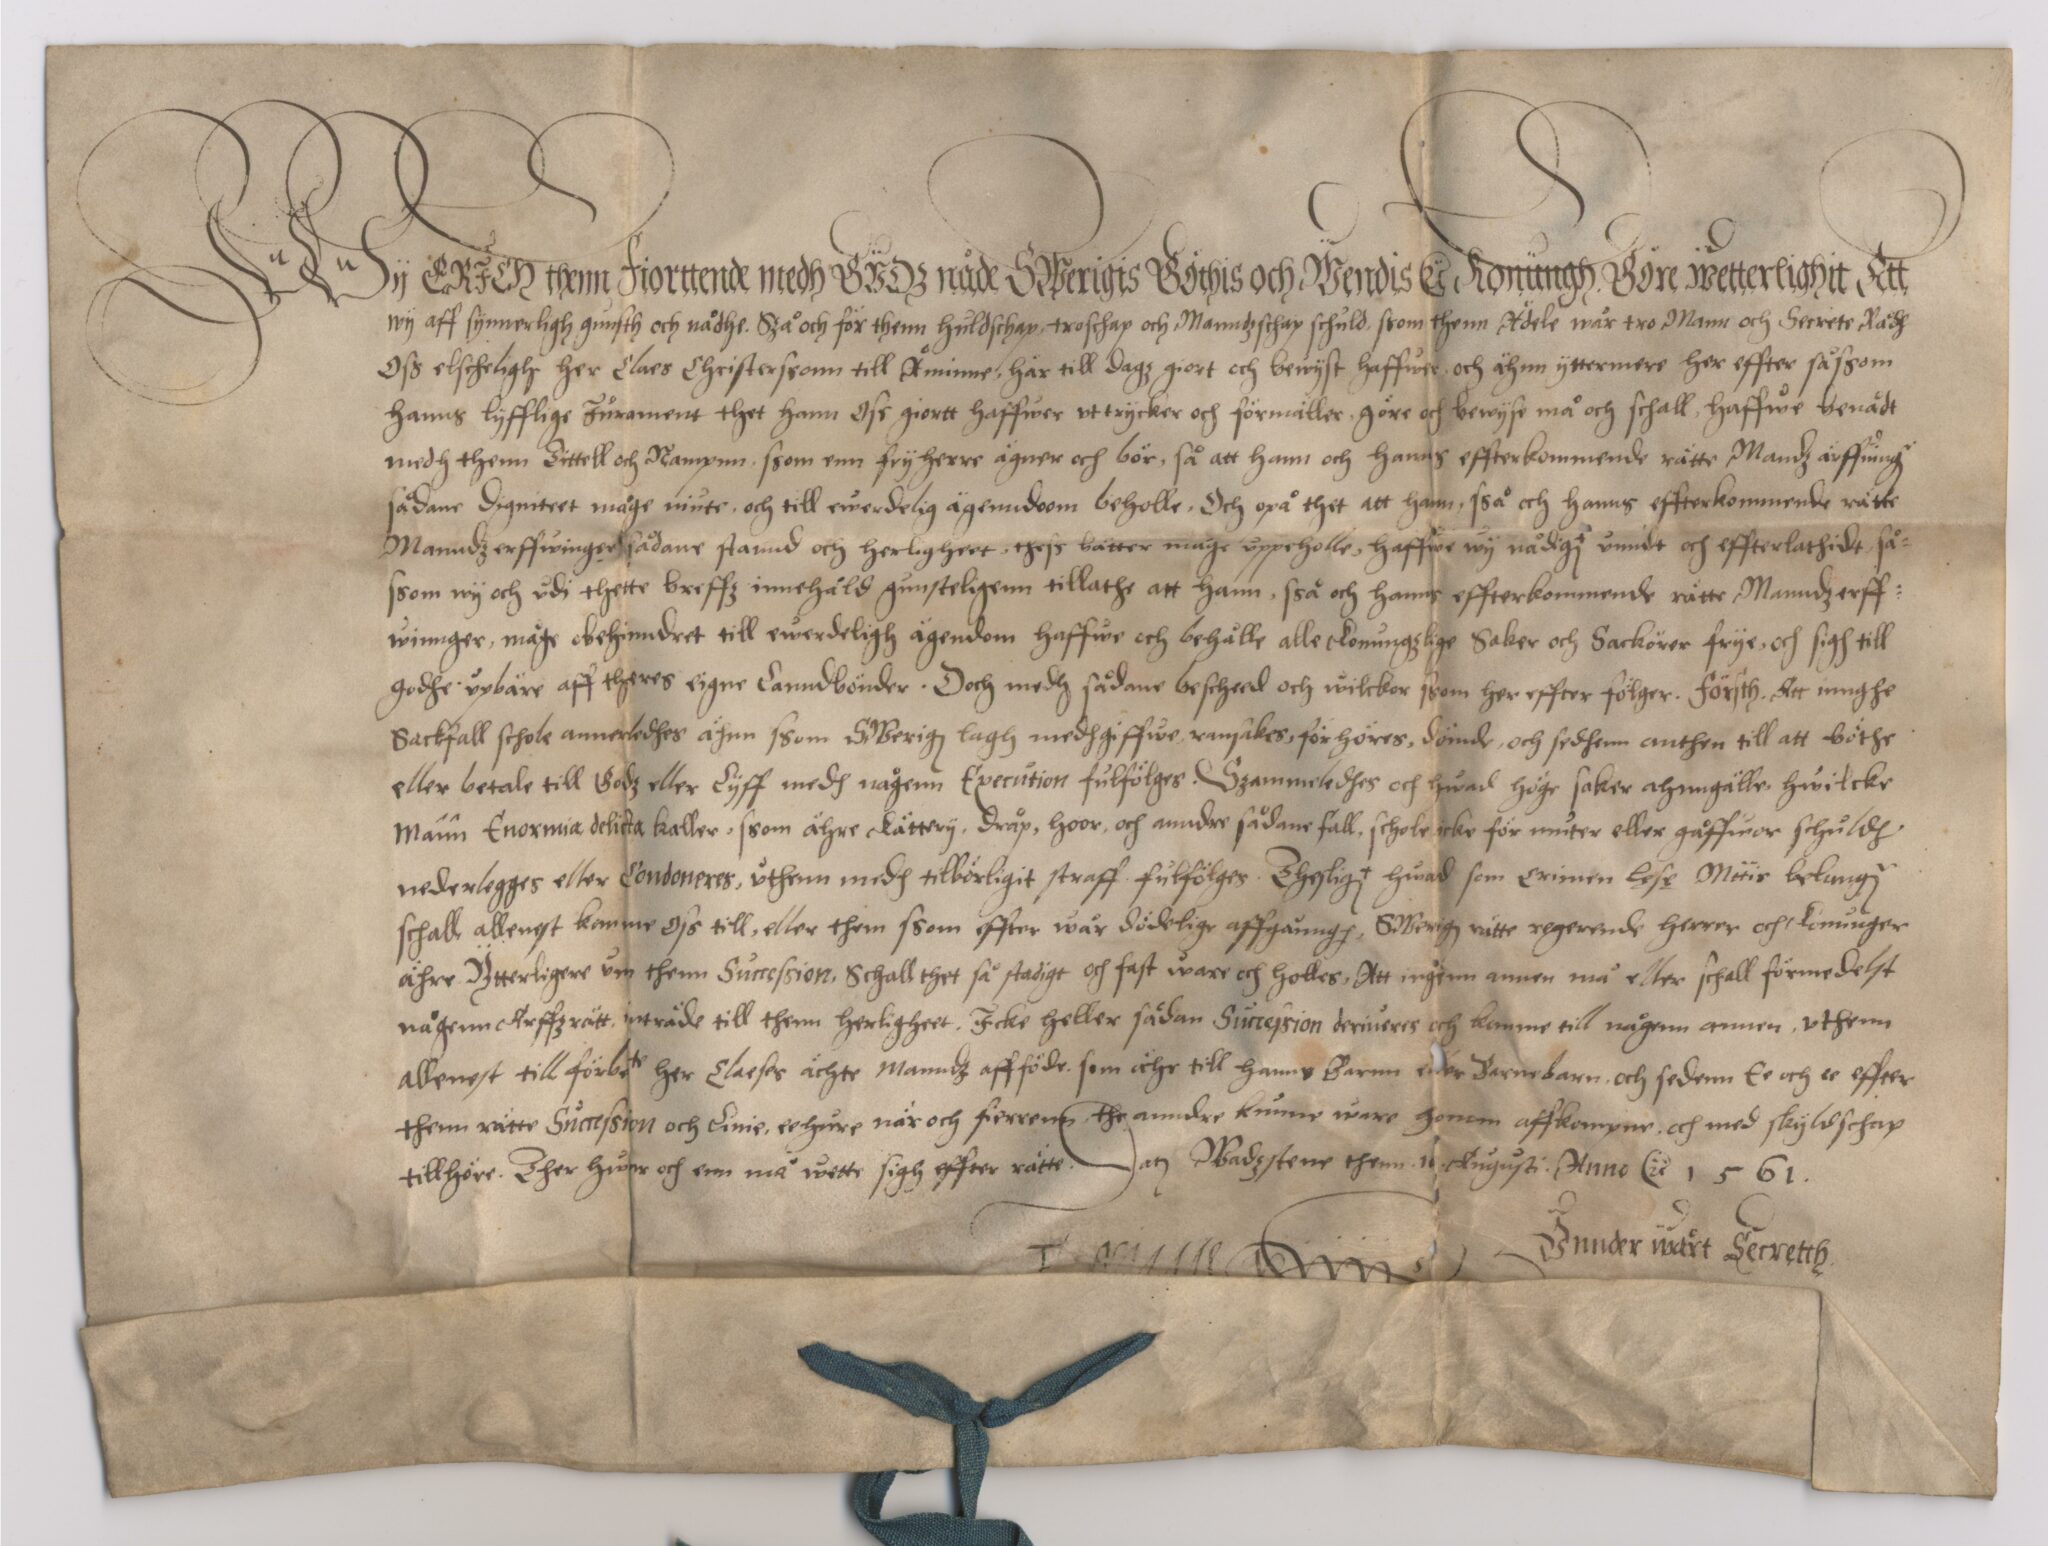 Wÿ ERICH thenn Fiorttende medh GUDz nåde SWerigis Göthis och Wendis Konüngh. Göre wetterlighit Att
wÿ aff synnerligh gunsth och nådhe. Szå och för thenn huldschap, troschap och Manndzschap schuld, ssom thenn Ädele wår tro Mann och Secrete Rådh
Oss elscheligh her Claes Christerssonn till Åminne, här till dagz giort och bewÿst haffwer, och ähnn ÿttermere her effter såssom
hanns lÿfflige Jurament thet hann Oss giortt haffwer vttrÿcker och förmäller, göre och bewÿse må och schall, haffwe benådt
medh thenn Tittell och Nampnn, ssom enn frÿherre ägner och bör, så att hann och hanns effterkommende rätte Mandz ärffüing
sådane digniteet måge niute, och till ewerdelig ägenndoom beholle, Och opå thet att hann, sså och hanns effterkommende rätte
Manndzerffwinger, sådane stannd och herligheet, thess bätter måge vppeholle, haffwe wÿ nådig unndt och effterlathidt, så-
ssom wÿ och vdi thette breffz innehåld gunsteligenn tillathe att hann, sså och hanns effterkommende rätte Manndzerff-
winnger, måge obehinndret till ewerdeligh ägendom haffwe och behålle alle Konungzlige Saker och Sackörer frÿe, och sigh till
godhe vpbäre aff theres eigne Lanndbönder. Doch medh sådane bescheed och wilckor ssom her effter fölger. Försth. Att innghe
Sackfall schole annerledhes ähnn ssom SWerig lagh medhgiffwe, ransakes, förhöres, döinde, och sedhenn anthen till att böthe
eller betale till Godz eller Lÿff medh någenn Execution fulfölges. Szammeledhes och hwad höge saker ahnngälle, hwilcke
Mann Enormia delicta kaller, ssom ähre Kätterÿ, dråp, hoor, och anndre sådane fall, schole icke för muter eller gåffwor schuldh
nederlegges eller Condoneres, vthenn medh tilbörligit straff fulfölges. Theslig hwad som crimen lesę Mttis belang
schall allenest komme Oss till, eller them ssom effter wår dödelige affgaung, SWerig rätte regerende herrer och Konunger
ähre Ÿtterligere um thenn Succession, Schall thet så stadigt och fast ware och holles, Att ingenn annen må eller schall förmedelst
någenn Arffzrätt, inträde till thenn herligheet. Icke heller sådan Succession deriveres och komme till någenn annen, vthenn
allenest till förbete her Claeses ächte Manndz affföde, som ähr till hanns Barnn eller Barnebarn, och sedenn Ee och ee effter
thenn rätte Succession och Linie, eehure när och fierrenn the anndre kunne ware honum affkompne, och med skÿldschap
tillhöre. Ther hwar och enn må wette sigh effter rätte. Datz Wadzstene thenn 11 Augusti. Anno 1561.
Vnnder wårt Secretth.